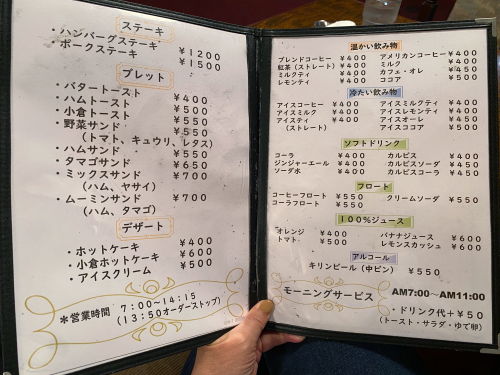 ステーキ
・ハンバーグステーキ ¥1200
・ポークステーキ ¥1500
ブレット
・バタートースト ¥400
・ハムトースト ¥500
・小倉トースト ¥550
・野菜サンド ¥550
(トマト、キュウリ、レタス)
・ハムサンド ¥550
・タマゴサンド ¥650
・ミックスサンド ¥700
(ハム、ヤサイ)
・ムーミンサンド ¥700
(ハム、タマゴ)
デザート
・ホットケーキ ¥400
・小倉ホットケーキ ¥600
・アイスクリーム ¥500
*営業時間 7:00~14:15
(13:50オーダーストップ)
温かい飲み物
ブレンドコーヒー ¥400 アメリカンコーヒー ¥400
紅茶(ストレート) ¥400 ミルク ¥400
ミルクティ ¥400 カフェ・オレ ¥450
レモンティ ¥400 ココア ¥500
冷たい飲み物
アイスコーヒー ¥400 アイスミルクティ ¥400
アイスミルク ¥400 アイスレモンティ ¥400
アイスティ ¥400 アイスオーレ ¥450
(ストレート) アイスココア ¥500
ソフトドリンク
コーラ ¥400 カルピス ¥400
ジンジャーエール ¥400 カルピスソーダ ¥450
ソーダ水 ¥400 カルピスコーラ ¥450
フロート
コーヒーフロート ¥550 クリームソーダ ¥550
コーラフロート ¥550
100%ジュース
オレンジ ¥400 バナナジュース ¥600
トマト ¥500 レモンスカッシュ ¥600
アルコール
キリンビール(中ビン) ¥550
モーニングサービス AM7:00~AM11:00
・ドリンク代+¥50
(トースト・サラダ・ゆで卵)